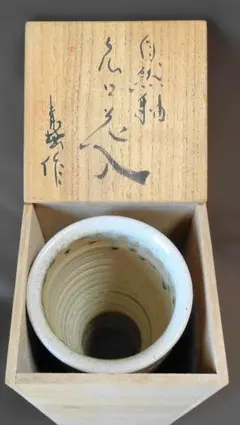 自然釉
広口花入
作